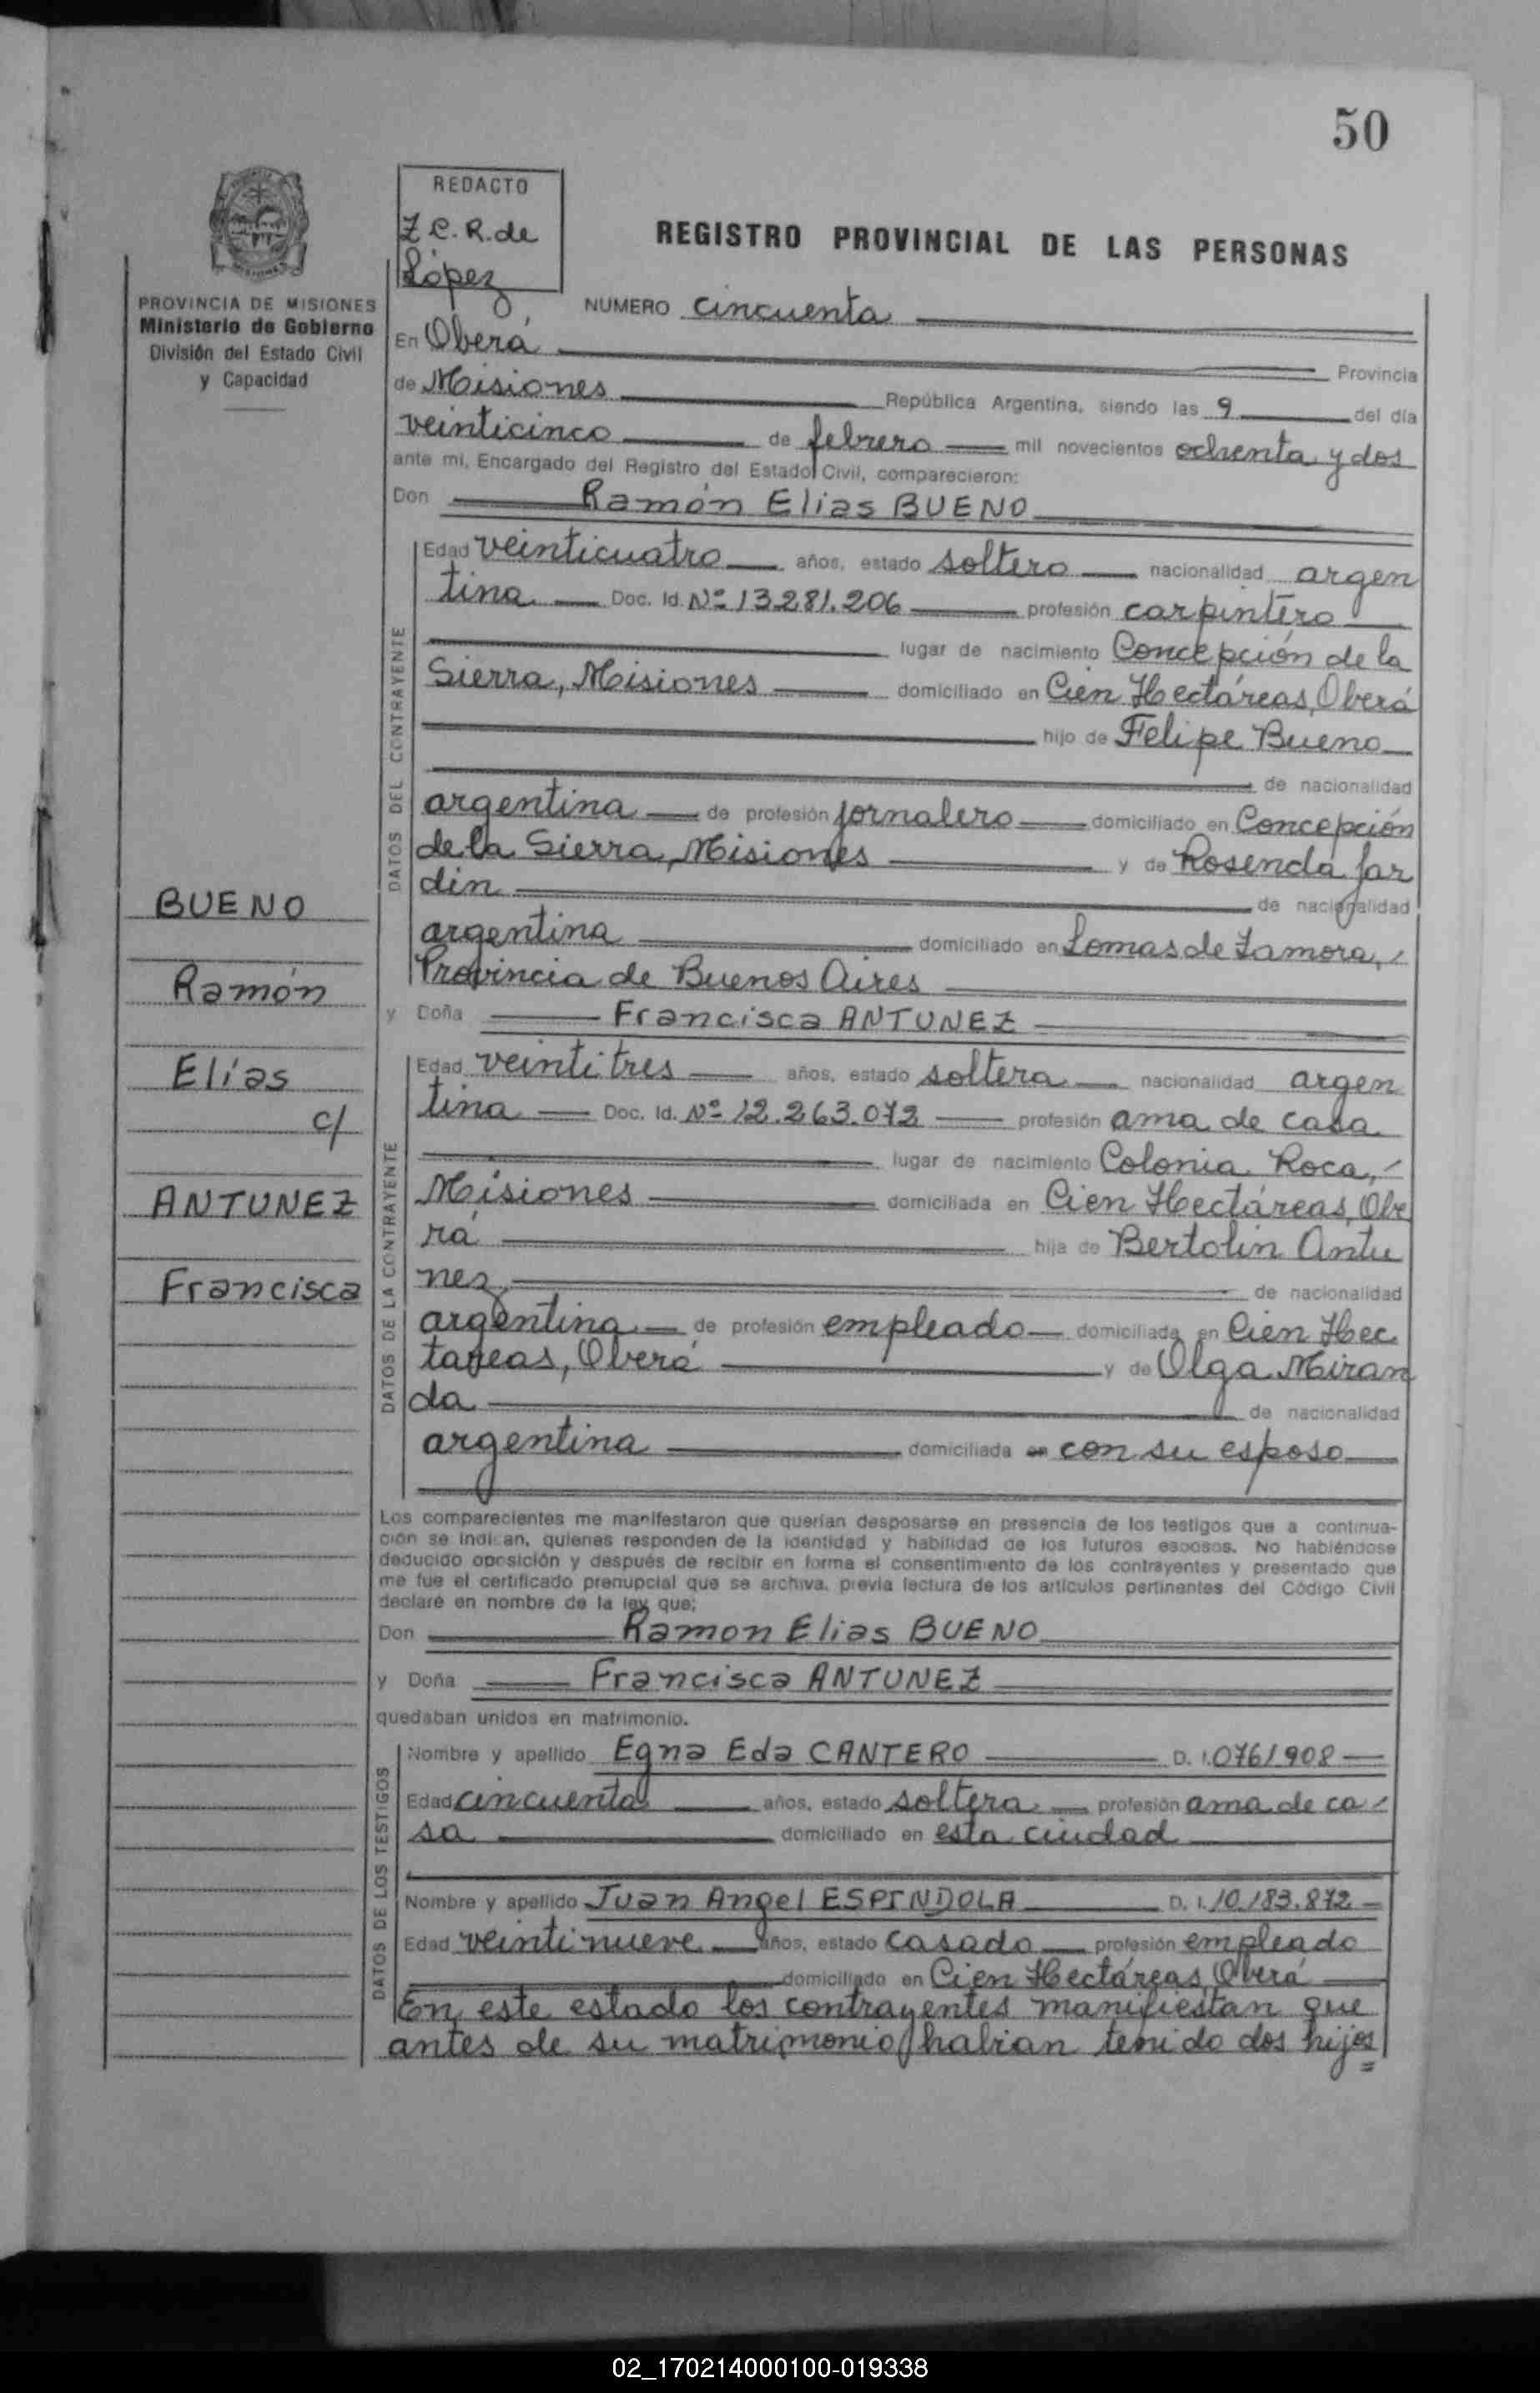 50
REDACTO
Z C. R. de
López
REGISTRO PROVINCIAL DE LAS PERSONAS
PROVINCIA DE MISIONES
Ministerio de Gobierno
División del Estado Civil
y Capacidad
NUMERO cincuenta
En Oberá Provincia
de Misiones República Argentina, siendo las 9 del día
veinticinco de febrero mil novecientos ochenta y dos
ante mi, Encargado del Registro del Estado Civil, comparecieron:
Don Ramón Elias BUENO
DATOS DEL CONTRAYENTE
Edad veinticuatro años, estado soltero nacionalidad argen
tina Doc. Id. Nº 13.281.206 profesión carpintero
lugar de nacimiento Concepción de la
Sierra, Misiones domiciliado en Cien Hectáreas, Oberá
hijo de Felipe Bueno
de nacionalidad
argentina de profesión jornalero domiciliado en Concepción
de la Sierra, Misiones y de Rosenda Jar
din de nacionalidad
argentina domiciliado en Lomas de Zamora,
Provincia de Buenos Aires
y Doña Francisca ANTUNEZ
DATOS DE LA CONTRAYENTE
Edad veintitres años, estado soltera nacionalidad argen
tina Doc. Id. Nº 12.263.072 profesión ama de casa
lugar de nacimiento Colonia Roca,
Misiones domiciliada en Cien Hectáreas, Obe
rá hija de Bertolin Antu
nez de nacionalidad
argentina de profesión empleado domiciliada en Cien Hec
tareas, Oberá y de Olga Miran
da de nacionalidad
argentina domiciliada en con su esposo
BUENO
Ramón
Elías
c/
ANTUNEZ
Francisca
Los comparecientes me manifestaron que querían desposarse en presencia de los testigos que a continua-
ción se indican, quienes responden de la identidad y habilidad de los futuros esposos. No habiéndose
deducido oposición y después de recibir en forma el consentimiento de los contrayentes y presentado que
me fue el certificado prenupcial que se archiva, previa lectura de los artículos pertinentes del Código Civil
declaré en nombre de la ley que;
Don Ramon Elias BUENO
y Doña Francisca ANTUNEZ
quedaban unidos en matrimonio.
DATOS DE LOS TESTIGOS
Nombre y apellido Egna Eda CANTERO D. I. 0761908
Edad cincuenta años, estado soltera profesión ama de ca
sa domiciliado en esta ciudad
Nombre y apellido Juan Angel ESPINDOLA D. I. 10.183.872
Edad veintinueve años, estado casado profesión empleado
domiciliado en Cien Hectáreas, Oberá
En este estado los contrayentes manifiestan que
antes de su matrimonio habian tenido dos hijos
02_170214000100-019338